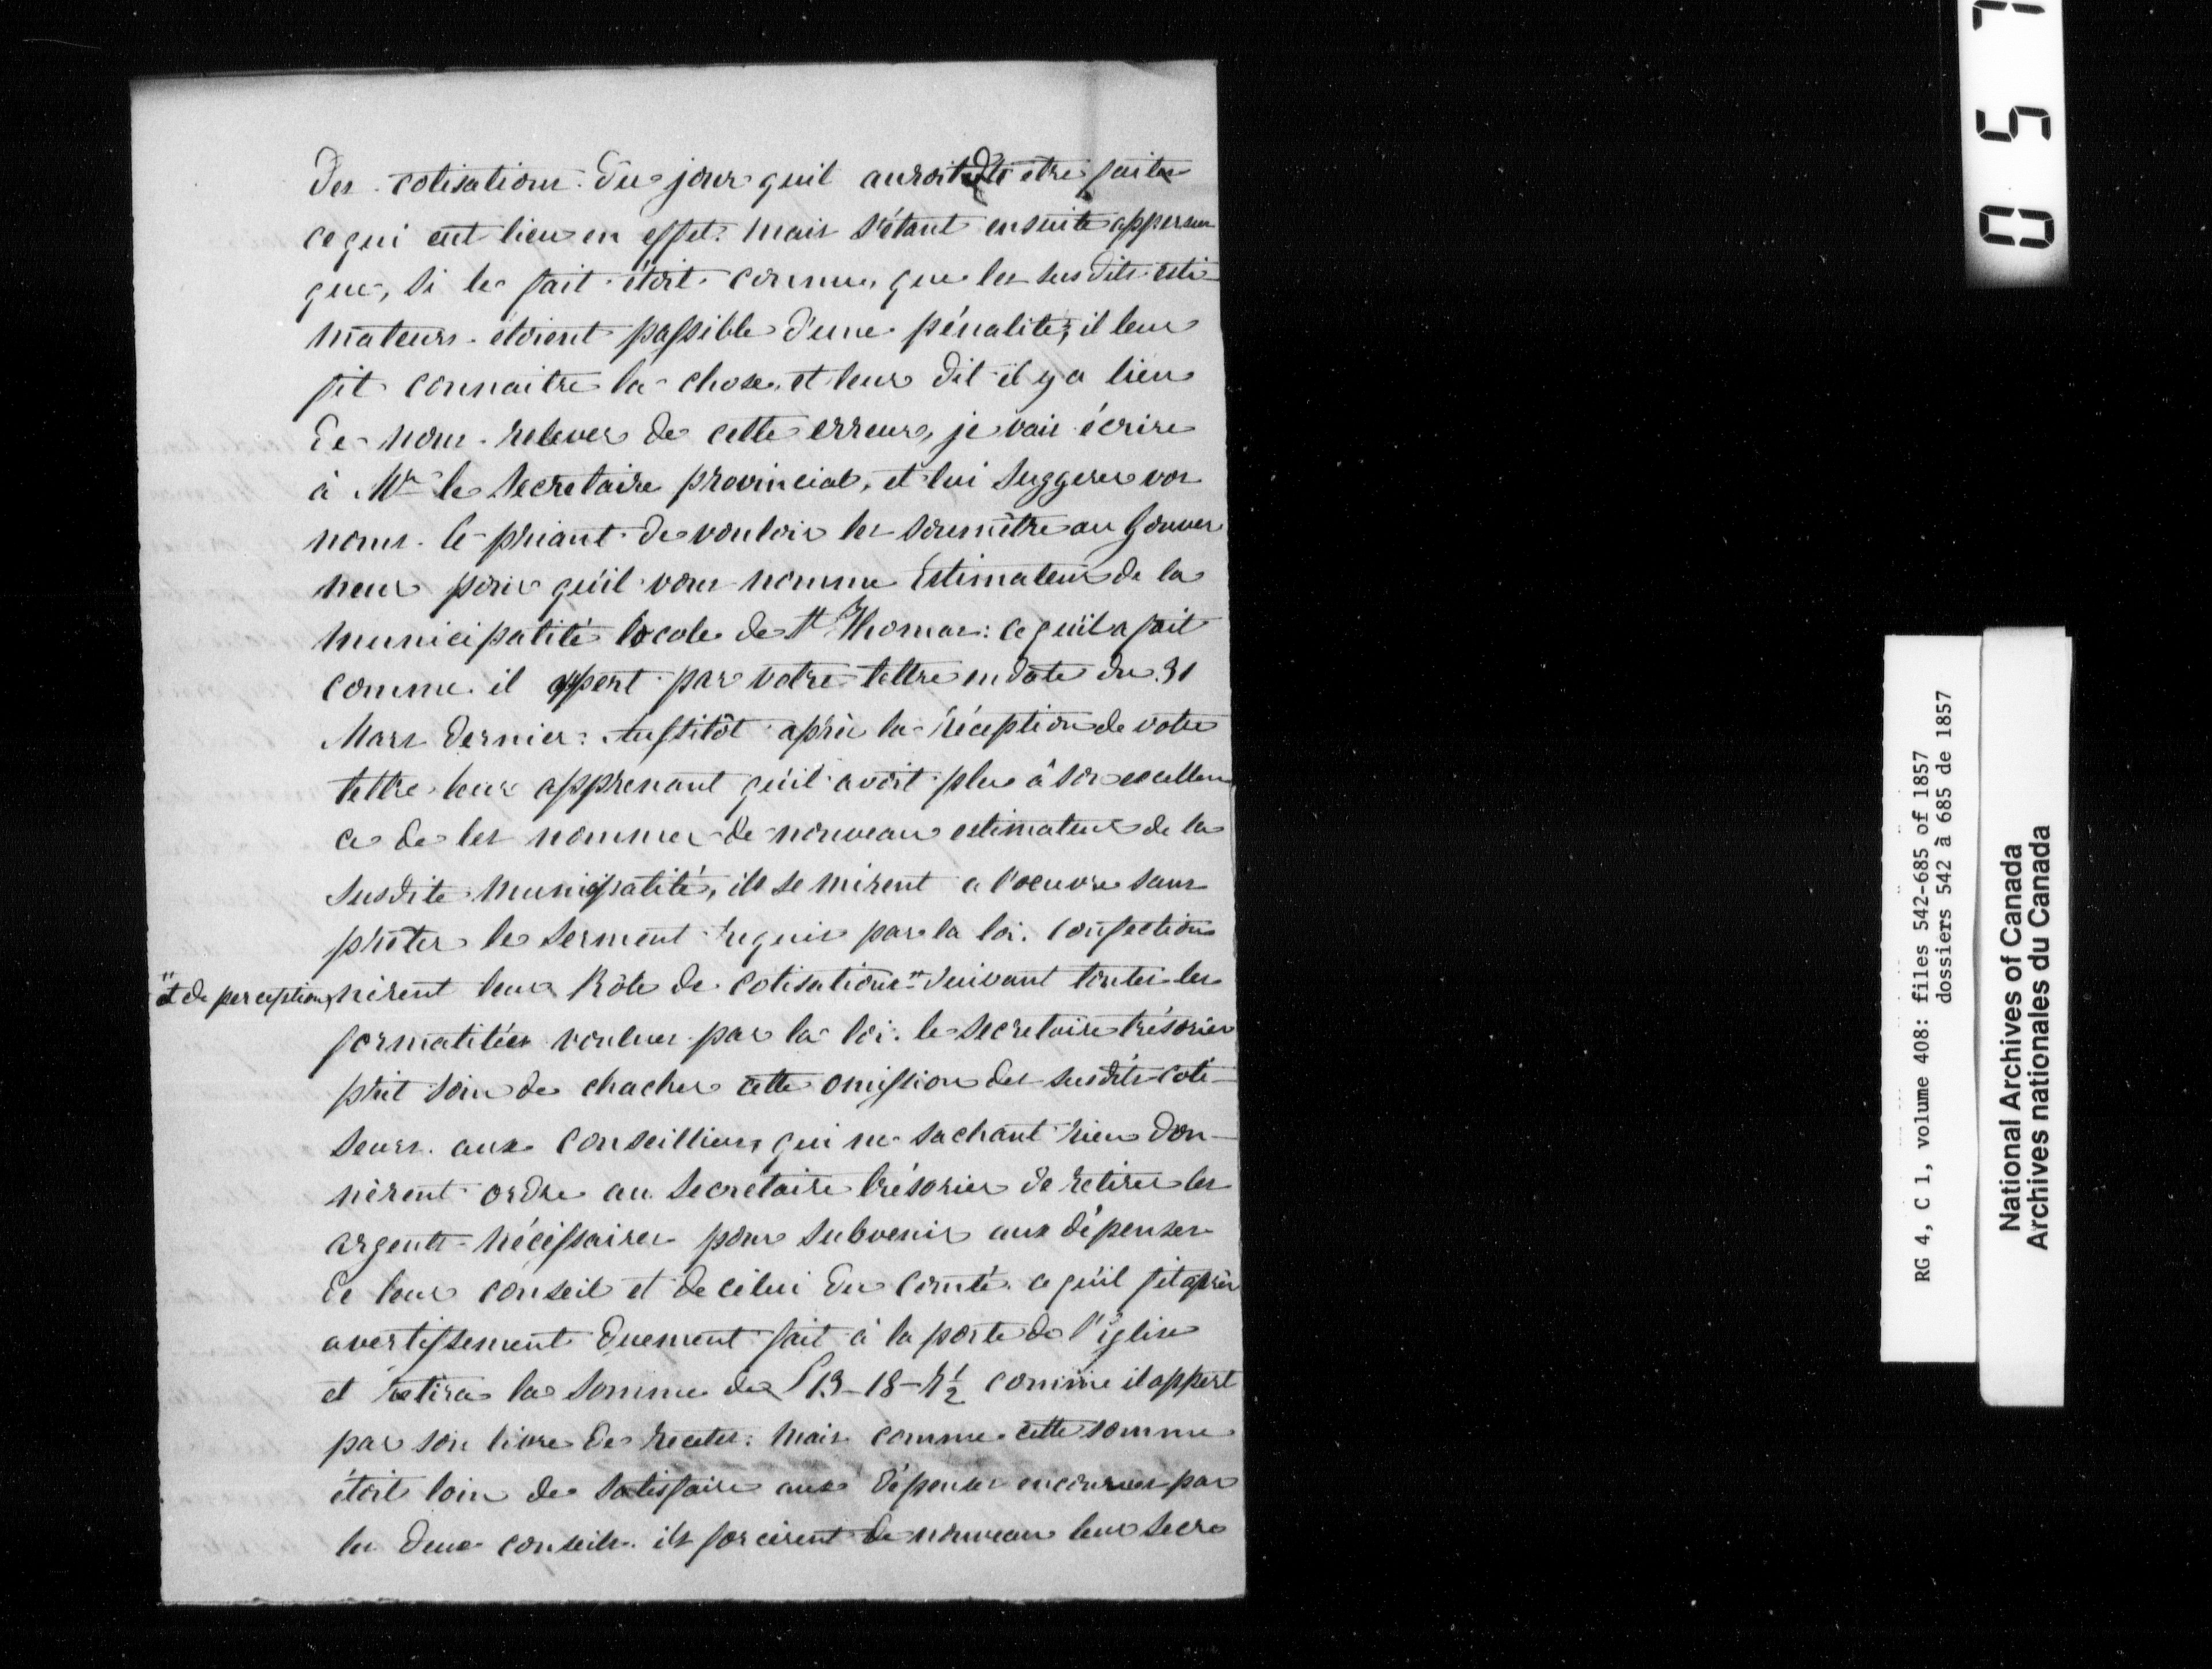 des cotisations. du jour quil auroit dû etre faites
ce qui eut lieu en effet. mais s'étant ensuite appersu
que, si le fait étoit connu, que les susdits esti-
mateurs étoient passible d'une pénalité; il leur
fit connaitre la chose, et leur dit il y a lieu
de nous relever de cette erreur, je vais écrire
à Mr le Secretaire provincial, et lui suggerer vos
noms. le priant de vouloir les soumêtre au Gouver
neur pour qu'il vous nomme Estimateur de la
municipalité locale de St Thomas: ce qu'il a fait
comme il appert par votre lettre en date du 31
Mars dernier: Aussitôt après la réception de votre
lettre leur apprenant qu'il avoit plu à son excellen
ce de les nommer de nouveau estimateur de la
susdite municipalité, ils se mirent a l'oeuvre sans
prêter le serment requis par la loi. confection
"et de perception nèrent leur Rôle de cotisations" suivant toutes les
formalitées voulues par la loi. le secretaire trésorier
prit soin de chacher cette omission des susdits coti-
seurs. aux conseilliers, qui ne sachant rien don-
nèrent ordre au Secretaire trésorier de retirer les
argents nécessaires pour subvenir aux dépenses
de leur conseil et de célui du comté. ce qu'il fit après
avertissement duement fait à la porte de l'église
et retira la somme de £13-18- ½ comme il appert
par son livre de recetes: mais comme cette somme
étoit loin de satisfaire aux dépenses encourues par
les deux conseils. ils forcèrent de nouveau leur Secre
0 5 7
RG 4, C 1, volume 408: files 542-685 of 1857
dossiers 542 à 685 de 1857
National Archives of Canada
Archives nationales du Canada